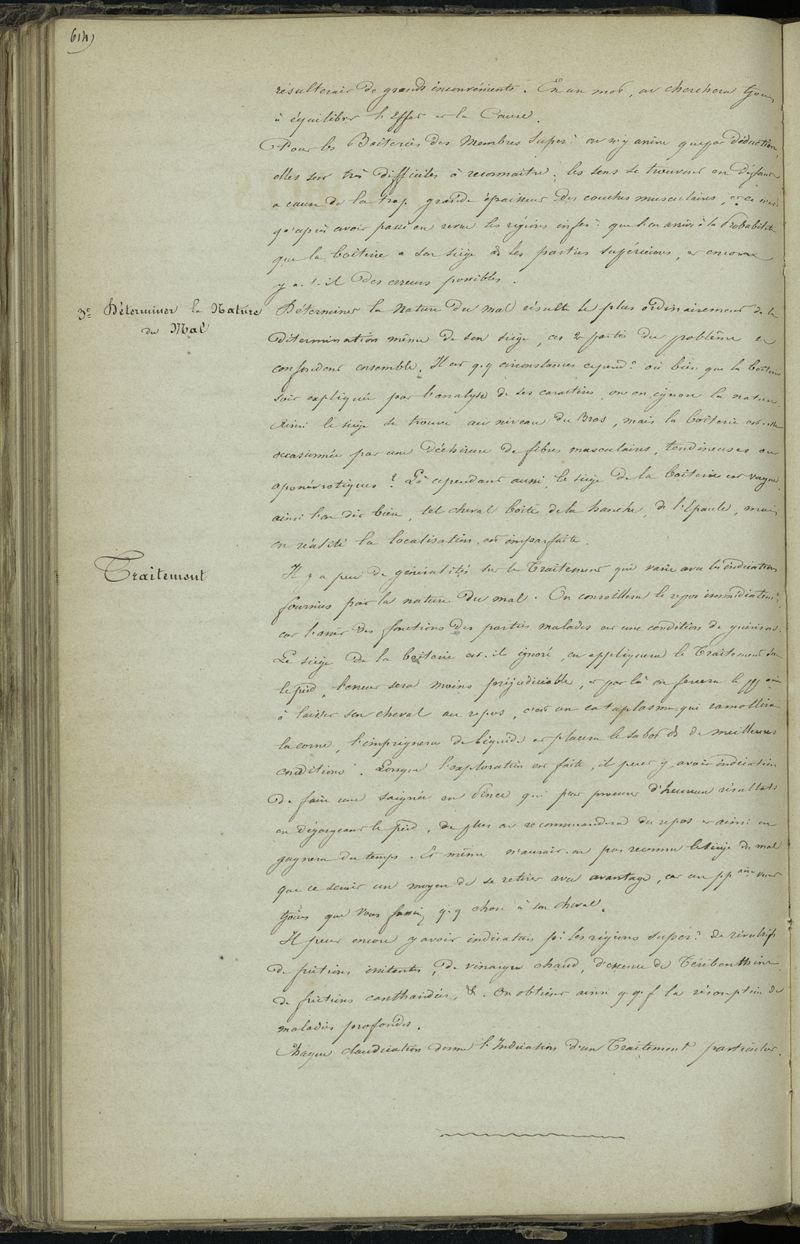 614)
résulterait de grands inconvénients. En un mot, on cherchera tjours
à équilibrer l'Effet et la Cause.
Pour les Boiteries des Membres Super.rs on n'y arrive que par déduction,
elles sont très difficiles à reconnaitre; les sens se trouvent en défaut
a cause de la trop grande épaisseur des couches musculaires, et ce n'est
qu'après avoir passé en revue les régions infér.res que l'on arrive à la Probabilité
que la boiterie a son siège ds les parties supérieures, et encore
y a-t-il des erreurs possibles.
3° Déterminer la Nature
du Mal
Déterminer la Nature du mal résulte le plus ordinairement de la
détermination même de son siège, ces 2 parties du problème se
confondent ensemble. Il est qq circonstances cepend.t où bien que la boiterie
soit expliquée par l'analyse de ses caractères, on en ignore la nature.
Ainsi le siège se trouve au niveau du Bras, mais la boiterie est-elle
occasionnée par une déchirure de fibres musculaires, tendineuses ou
aponévrotiques? Là cependant aussi, le siège de la boiterie est vague,
ainsi l'on dit bien, tel cheval boite de la hanche, de l'Epaule, mais
en réalité la localisation est imparfaite.
Traitement
Il y a peu de généralités sur le Traitement qui varie avec les indications
fournies par la nature du mal. On conseillera le repos immédiatem.t
car l'arrêt des fonctions des parties malades est une condition de guérison.
Le siège de la boiterie est-il ignoré, on appliquera le Traitement sur
le pied, l'erreur sera moins préjudiciable, et par là on forcera le pp aire
à laisser son cheval au repos, c'est un cataplasme qui ramollira
la corne, l'imprègnera de liquide et placera le sabot ds de meilleures
conditions. Lorsque l'exploration est faite, il peut y avoir indication
de faire une saignée en Pince qui peut procurer d'heureux résultats
en dégorgeant le pied, de plus on recommandera du repos et ainsi on
gagnera du temps. Et même n'aurait-on pas reconnu le siège du mal
que ce serait un moyen de se retirer avec avantage, car un pp aire veut
tjours que vous fassiez qq chose à son cheval.
Il peut encore y avoir indication pr les régions super.res de révulsifs
de frictions irritantes, de vinaigre chaud, d'essence de Térébenthine
de frictions cantharidées, &. On obtient ainsi qq f la résorption de
maladies profondes.
Chaque claudication donne l'Indication d'un Traitement particulier.